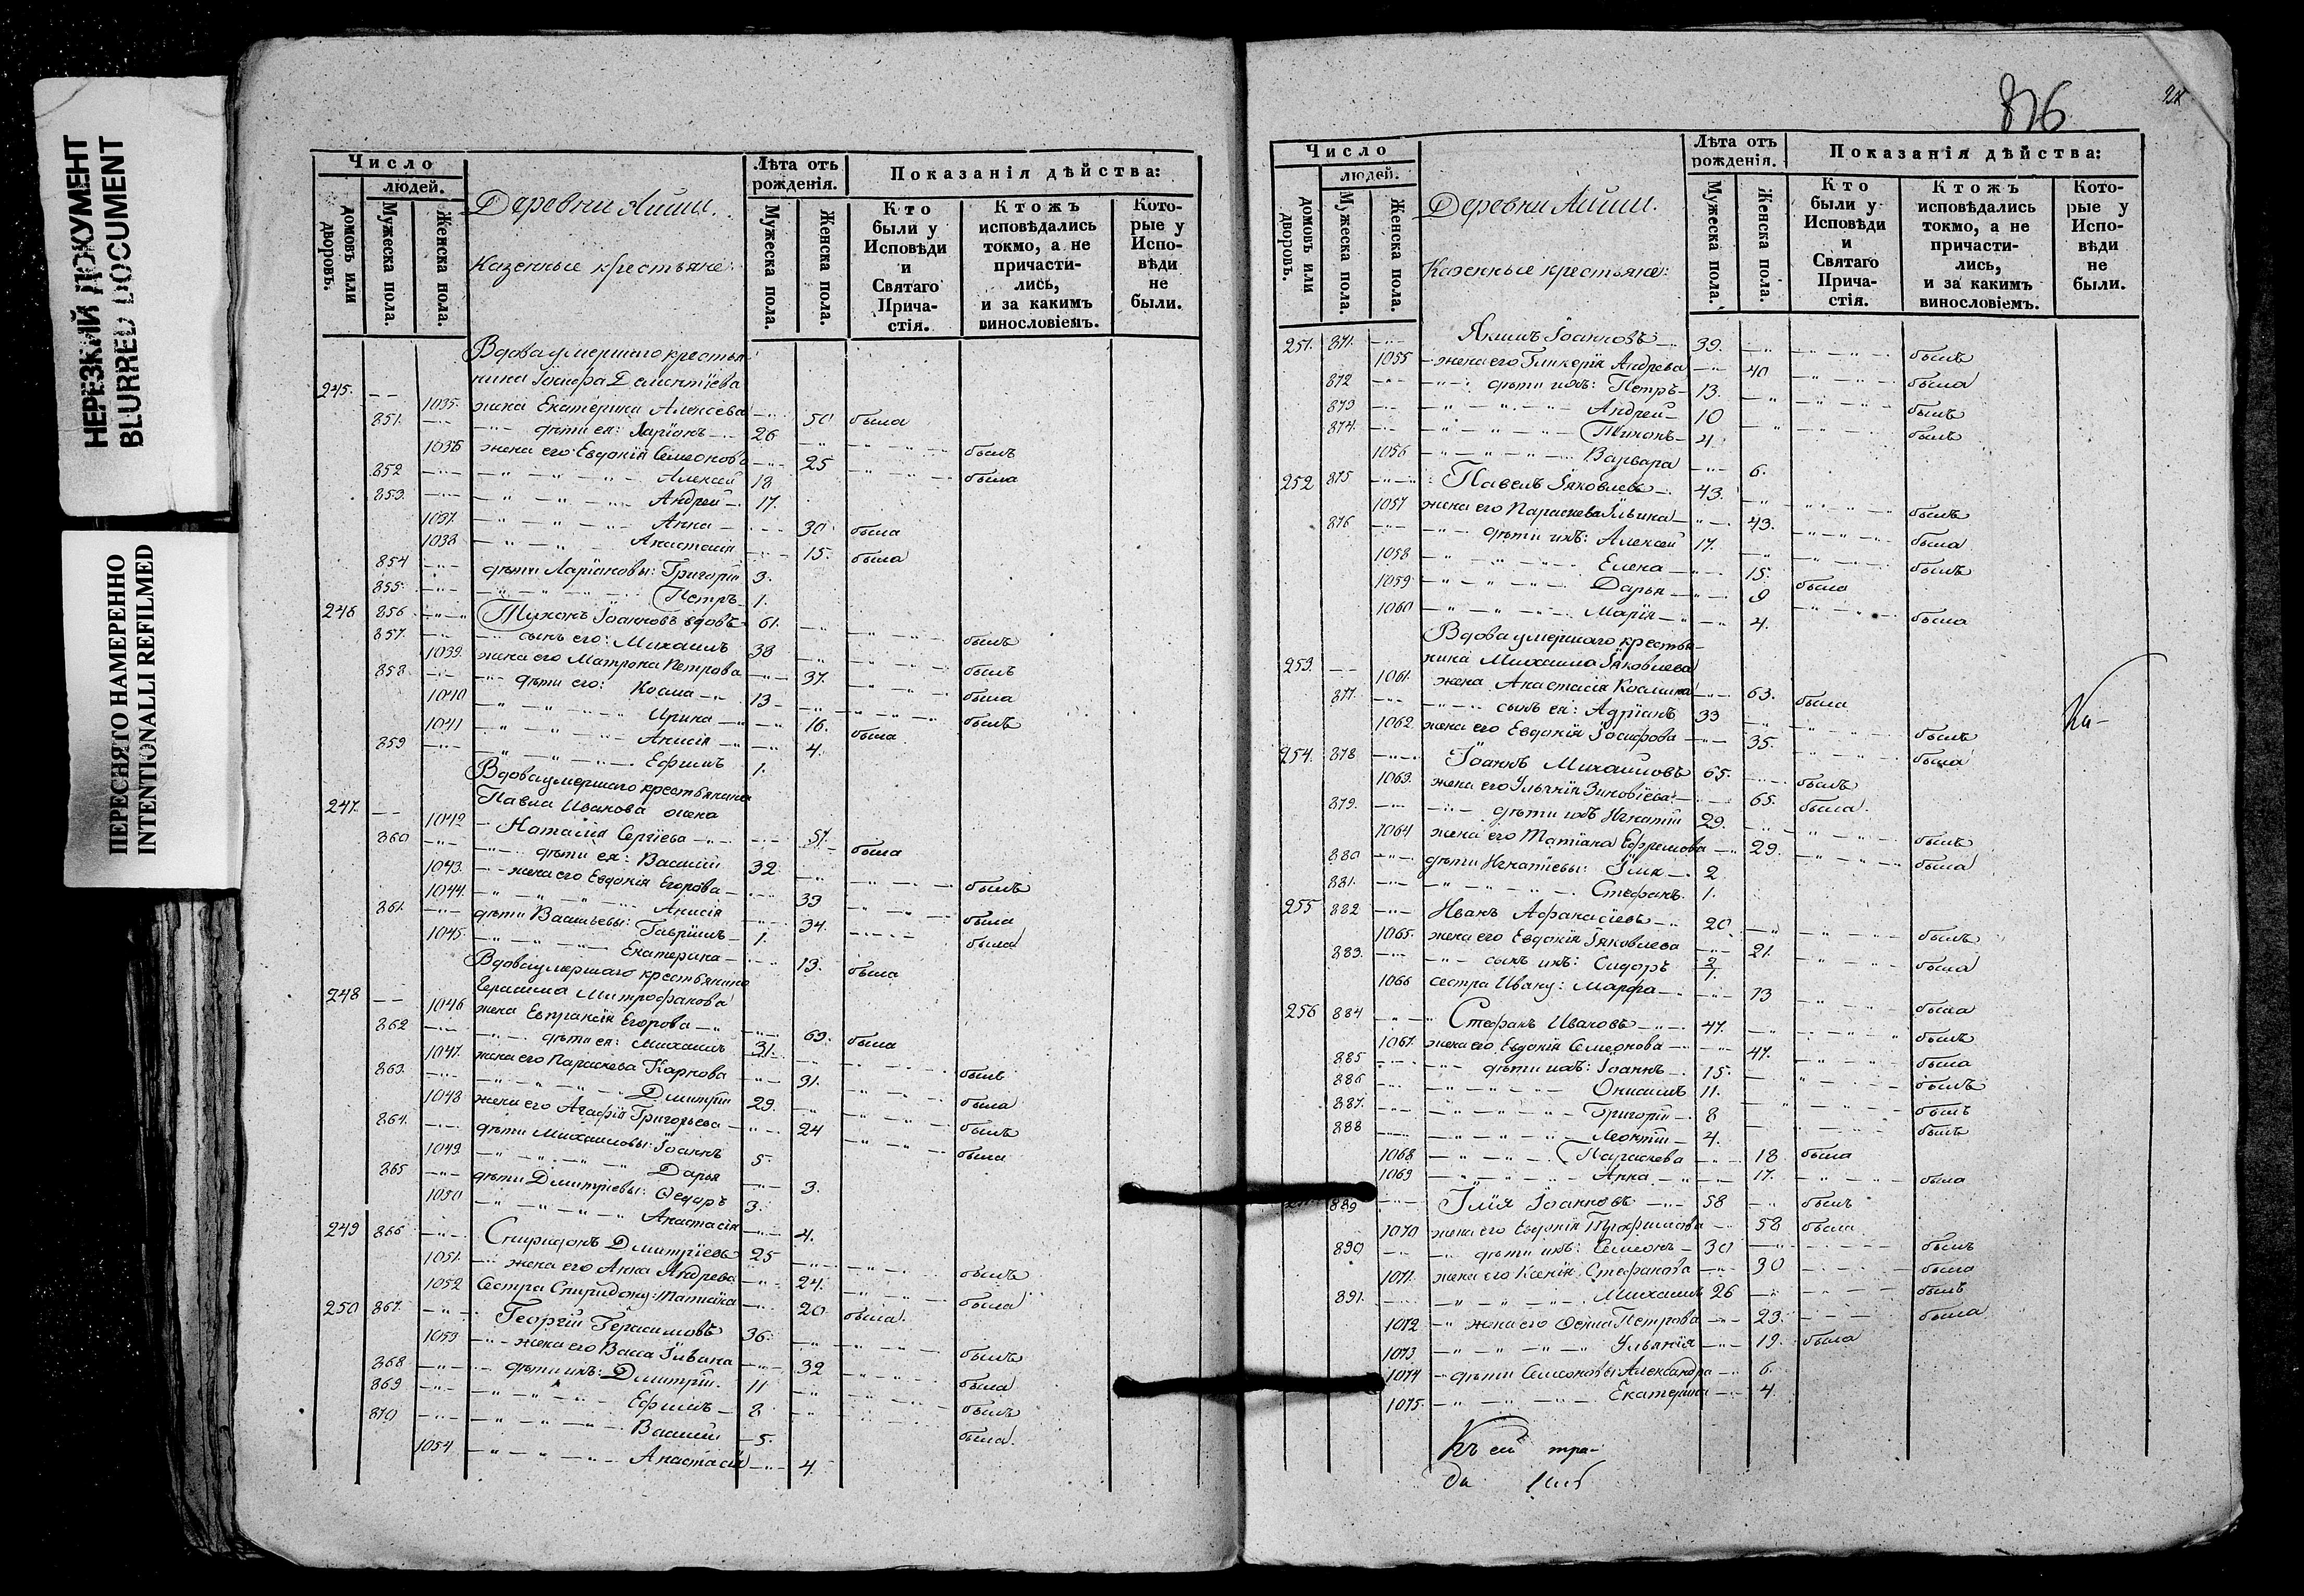 НЕРЕЗКИЙ ДОКУМЕНТ
BLURRED DOCUMENT
ПЕРЕСНЯТО НАМЕРЕННО
INTENTIONALLI REFILMED
Число
людей.
домовъ или дворовъ.
Мужеска пола.
Женска пола.
Деревни Айши.
Казенные крестьяне:
Лѣта отъ рожденія.
Мужеска пола.
Женска пола.
Показанія дѣйства:
Кто были у Исповѣди и Святаго Прича-стія.
Ктожъ исповѣдались токмо, а не причасти-лись, и за какимъ винословіемъ.
Кото-рые у Испо-вѣди не были.
Вдова умершаго крестья
нина Іосифа Дементіева
245. 1035. жена Екатерина Алексѣева 50 была
851. дѣти ея: Ларіонъ 26 былъ
1036 жена его Евдокія Семеонова 25 была
852 Алексѣй 18
853. Андрей 17.
1037. Анна 30 была
1038 Анастасія 15. была
854 дѣти Ларіоновы: Григорій 3.
855. Петръ 1.
246 856 Тихонъ Іоанновъ вдовъ 61. былъ
857. сынъ его: Михаилъ 38 былъ
1039. жена его Матрона Петрова 37. была
858 дѣти его: Косма 13 былъ
1040 Ирина 16. была
1041 Анисія 4.
859 Ефимъ 1.
Вдова умершаго крестьянина
Павла Иванова жена
247. 1042 Наталія Сергіева 57. была
860 дѣти ея: Василій 32 былъ
1043. жена его Евдокія Егорова 33 была
1044. Анисія 34. была
861. дѣти Васильевы: Гавріилъ 1.
1045. Екатерина 13. была
Вдова умершаго крестьянина
Герасима Митрофанова
248 1046 жена Евпраксія Егорова 69. была
862 дѣти ея: Михаилъ 31. былъ
1047. жена его Параскева Карпова 31. была
863. Дмитрій 29. былъ
1048 жена его Агафія Григорьева 24 была
864. дѣти Михаиловы: Іоаннъ 5.
1049. Дарья 3.
865 дѣти Дмитріевы: Ѳедоръ 3.
1050 Анастасія 4.
249 866 Спиридонъ Дмитріевъ 25 былъ
1051. жена его Анна Андрева 24. была
1052 Сестра Спиридону: Татіана 20. была.
250 867. Георгій Герасимовъ 36. былъ
1053 жена его Васса Ильина 32 была
868 дѣти ихъ: Дмитрій. 11 былъ
869 Ефимъ 8 была.
870 Василій 5.
1054 Анастасія 4.
876
Число
людей.
домовъ или дворовъ.
Мужеска пола.
Женска пола.
Деревни Айши.
Казенные крестьяне:
Лѣта отъ рожденія.
Мужеска пола.
Женска пола.
Показанія дѣйства:
Кто были у Исповѣди и Святаго Прича-стія.
Ктожъ исповѣдались токмо, а не причасти-лись, и за какимъ винословіемъ.
Кото-рые у Испо-вѣди не были.
251. 871. Якимъ Іоанновъ 39. былъ
1055 жена его Гликерія Андрева 40 была
872 дѣти ихъ: Петръ 13. былъ
873 Андрей 10 былъ
874. Тихонъ 4.
1056 Варвара 6.
252 875 Павелъ Іаковлевъ 43. былъ
1057 жена его Параскева Ильина 43. была
876 дѣти ихъ: Алексѣй 17. былъ
1058 Елена 15. была
1059 Дарья 9 была
1060 Марія 4.
Вдова умершаго крестья-
нина Михаила Іаковлева
253. 1061. жена Анастасія Космина 63. была
877. сынъ ея: Адріанъ 33 былъ
1062. жена его Евдокія Іосифова 35. была
254. 878 Іоаннъ Михаиловъ 65. былъ
1063. жена его Ульянія Зиновіева 65. была.
879. дѣти ихъ Игнатій 29. былъ
1064 жена его Татіана Ефремова 29. была
880 дѣти Игнатіевы: Илія 2
881. Стефанъ 1.
255 882 Иванъ Афанасіевъ 20. былъ
1065. жена его Евдокія Іаковлева 21. была
883. сынъ ихъ: Сидоръ
1066 сестра Ивану: Марфа 13 была
256 884 Стефанъ Ивановъ 47. былъ
1067. жена его Евдокія Семеонова 47. была
885 дѣти ихъ: Іоаннъ 15. былъ
886 Онисимъ 11. былъ
887. Григорій 8 былъ
888 Леонтій 4.
1068 Параскева 18 была
1069 Анна 17. была
889 Илія Іоанновъ 58 былъ
1070 жена его Евдокія Трофимова 58 была
890 дѣти ихъ: Семеонъ 30 былъ
1071. жена его Ксенія Стефанова 30 была
891. Михаилъ 26 былъ
1072 жена его Петрова 23. была
1073 Ульянія 19. была
1074 дѣти Семеоновы: Александра 6.
1075. Екатерина 4.